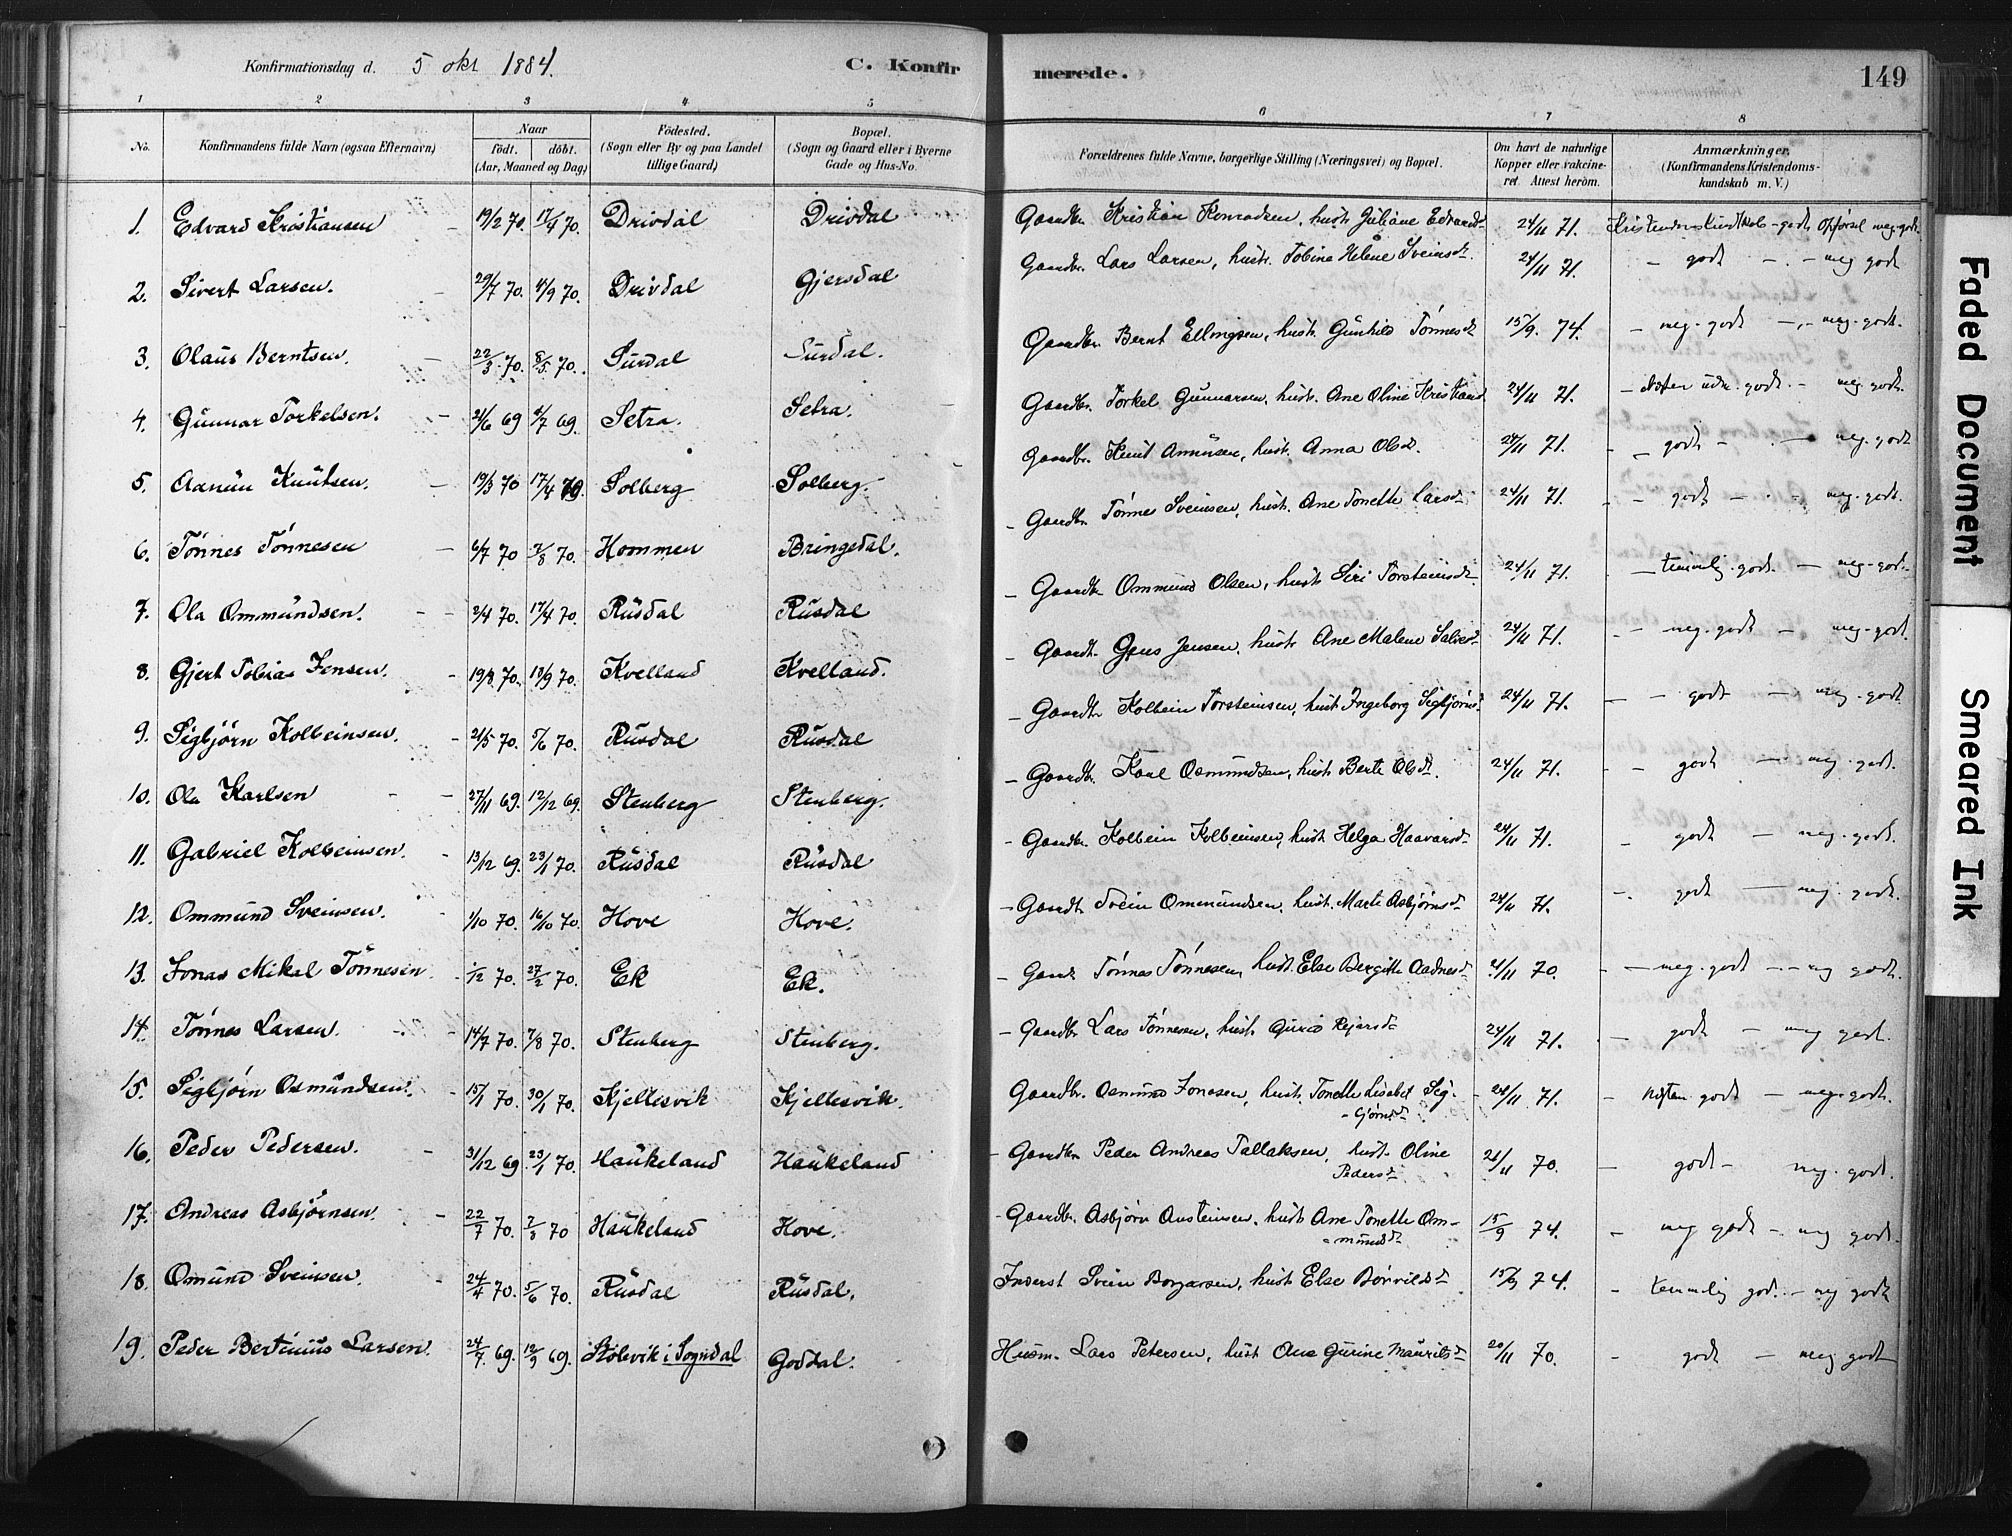 Konfirmationsdag d. 5 okt 1884. C. Konfirmerede. 149
1 2 3 4 5 6 7 8
No. Konfirmandens fulde Navn (ogsaa Efternavn) Naar födt. döbt. (Aar, Maaned og Dag) Födested. (Sogn eller By og paa Landet tillige Gaard) Bopæl. (Sogn og Gaard eller i Byerne Gade og Hus-No. Forældrenes fulde Navne, borgerlige Stilling (Næringsvei) og Bopæl. Om havt de naturlige Kopper eller vakcineret. Attest herom. Anmærkninger. (Konfirmandens Kristendomskundskab m. V.)
1. Edvard Kristiansen 19/2 70. 17/4 70. Drivdal Drivdal Gaardbr. Kristian Konradsen, hustr. Juliane Edvardsdt. 24/11 71. Kristendomskundskab - godt, Opførsel meg. godt.
2. Sivert Larsen. 29/7 70. 4/9 70. Drivdal Gjersdal Gaardbr. Lars Larsen, hustr. Tobine Helene Sveinsdt. 24/11 71. - godt - meg godt
3. Olaus Berntsen. 22/3 70. 8/5 70. Surdal Surdal. Gaardbr. Bernt Ellingsen, hustr. Gunhild Tönnesdt 15/9. 74. - meg. godt - meg. godt.
4. Gunnar Torkelsen. 21/6 69 4/7 69. Setra. Setra. Gaardbr. Torkel Gunnarsen, hustr. Ane Oline Kristiansd 24/11 71. - godt. - meg. godt.
5. Aanün Knutsen. 19/3 70 17/4 70. Solberg Solberg Gaardbr. Knud Aanünsen, hustr. Anna Olsdt. 24/11 71. - godt - meg. godt
6. Tönnes Tönnesen 6/7 70 7/8 70. Hommen Bringedal. - Gaardbr. Tönnes Sveinsen, hustr. Ane Tonette Larsdt 24/11 71. - godt - meg. godt.
7. Ola Ommundsen. 2/4 70. 17/4 70. Rusdal Rusdal - Gaardbr. Ommund Olsen, hustr. Siri Torsteinsdt. 24/11 71. - temmelig godt. - meg. godt.
8. Gjert Tobias Jensen. 19/8 70. 18/9 70. Kvelland Kvelland. - Gaardbr. Jens Jensen, hustr. Ane Malene Salvesdt 24/11 71. - meg. godt - meg. godt.
9. Sigbjörn Kolbeinsen. 21/5 70. 5/6 70. Rusdal Rusdal - Gaardbr. Kolbein Torsteinsen, hust. Ingeborg Sigbjörnsd. 24/11 71. - godt - meg. godt
10. Ola Karlsen 27/11 69. 12/12 69. Stenberg Stenberg. - Gaardbr. Karl Osmundsen, hustr. Berte Olsdt. 24/11 71. - godt - meg. godt.
11. Gabriel Kolbeinsen. 13/12 69. 23/1 70. Rusdal Rusdal - Gaardbr. Kolbein Kolbeinsen, hust. Helga Haavarsdt 24/11 71. - godt - meg. godt.
12. Ommund Sveinsen. 1/10 70. 16/10 70. Hove Hove. - Gaardbr. Svein Ommundsen, hust. Marte Asbjörnsdt 24/11 71. - godt - meg. godt.
13. Jonas Mikal Tönnesen 1/2 70. 27/2 70. Ek Ek. - Gaardbr. Tönnes Tönnesen, hust. Else Bergitte Aadnesdt 21/11 70. - meg. godt - meg godt.
14. Tönnes Larsen. 14/7 70. 7/8 70. Stenberg Stenberg. - Gaardbr. Lars Tönnesen, hust. Gurid Rejersdt 24/11 71. - godt - meg godt.
15. Sigbjörn Osmundsen. 15/1 70. 30/1 70. Kjellesvik Kjellesvik. Gaardbr. Osmund Jonasen, hust. Tonette Lisabet Sig-
björnsdt - 24/11 71. - næsten godt - meg. godt.
16. Peder Pedersen. 31/12 69. 23/1 70. Haukeland Haukeland - Gaardbr. Peder Andreas Tallaksen, hust. Oline
Pedersdt 21/11 70. - godt - meg. godt.
17. Andreas Asbjörnsen. 22/7 70. 7/8 70 Haukeland Hove. - Gaardbr. Asbjörn Austeinsen, hustr. Ane Tonette Om-
mundsdt 15/9 74. - meg godt - meg godt.
18. Omund Sveinsen. 24/4 70. 5/6 70. Rusdal Rusdal. Inderst Svein Borgarsen, hust Else Bönvilsdt 15/9 74. - temmelig godt. - meg godt
19. Peder Bertinius Larsen. 24/7. 69. 12/9 69. Stölsvik i Sogndal Goddal. Husm. Lars Petersen, hust Ane Gurine Mauritsdt 20/11 70. - godt - meg godt
Faded Document
Smeared Ink